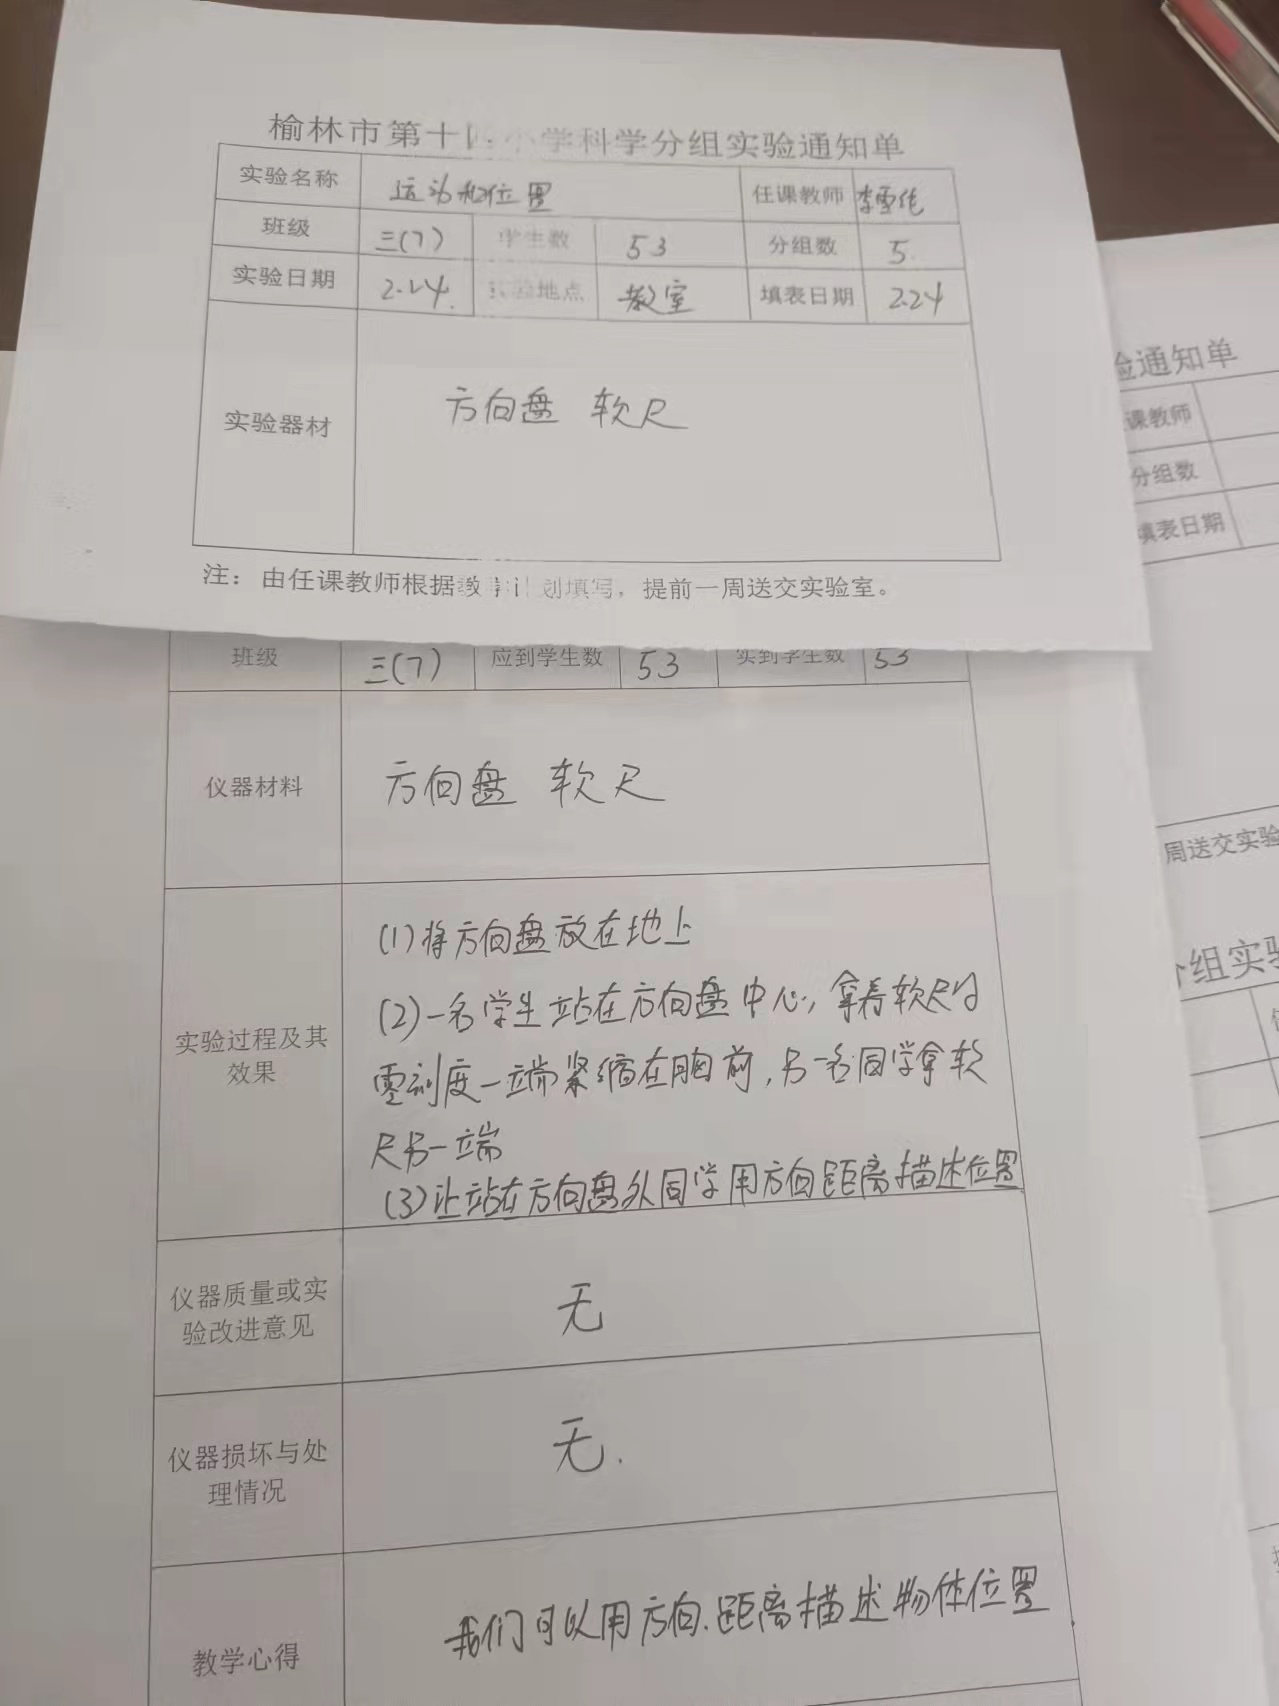 榆林市第十四小学科学分组实验通知单
实验名称 运动和位置 任课教师
班级 三(7) 学生数 53 分组数 5
实验日期 2.24. 实验地点 教室 填表日期 2.24
实验器材 方向盘 软尺
注：由任课教师根据教学计划填写，提前一周送交实验室。
班级 三(7) 应到学生数 53 实到学生数 53
仪器材料 方向盘 软尺
实验过程及其
效果
(1)将方向盘放在地上
(2)一名学生站在方向盘中心，拿着软尺的
零刻度一端紧缩在胸前，另一名同学拿软
尺另一端
(3)让站在方向盘外同学用方向距离描述位置
仪器质量或实
验改进意见
无
仪器损坏与处
理情况
无.
教学心得 我们可以用方向.距离描述物体位置
验通知单
课教师
分组数
填表日期
周送交实验
分组实验